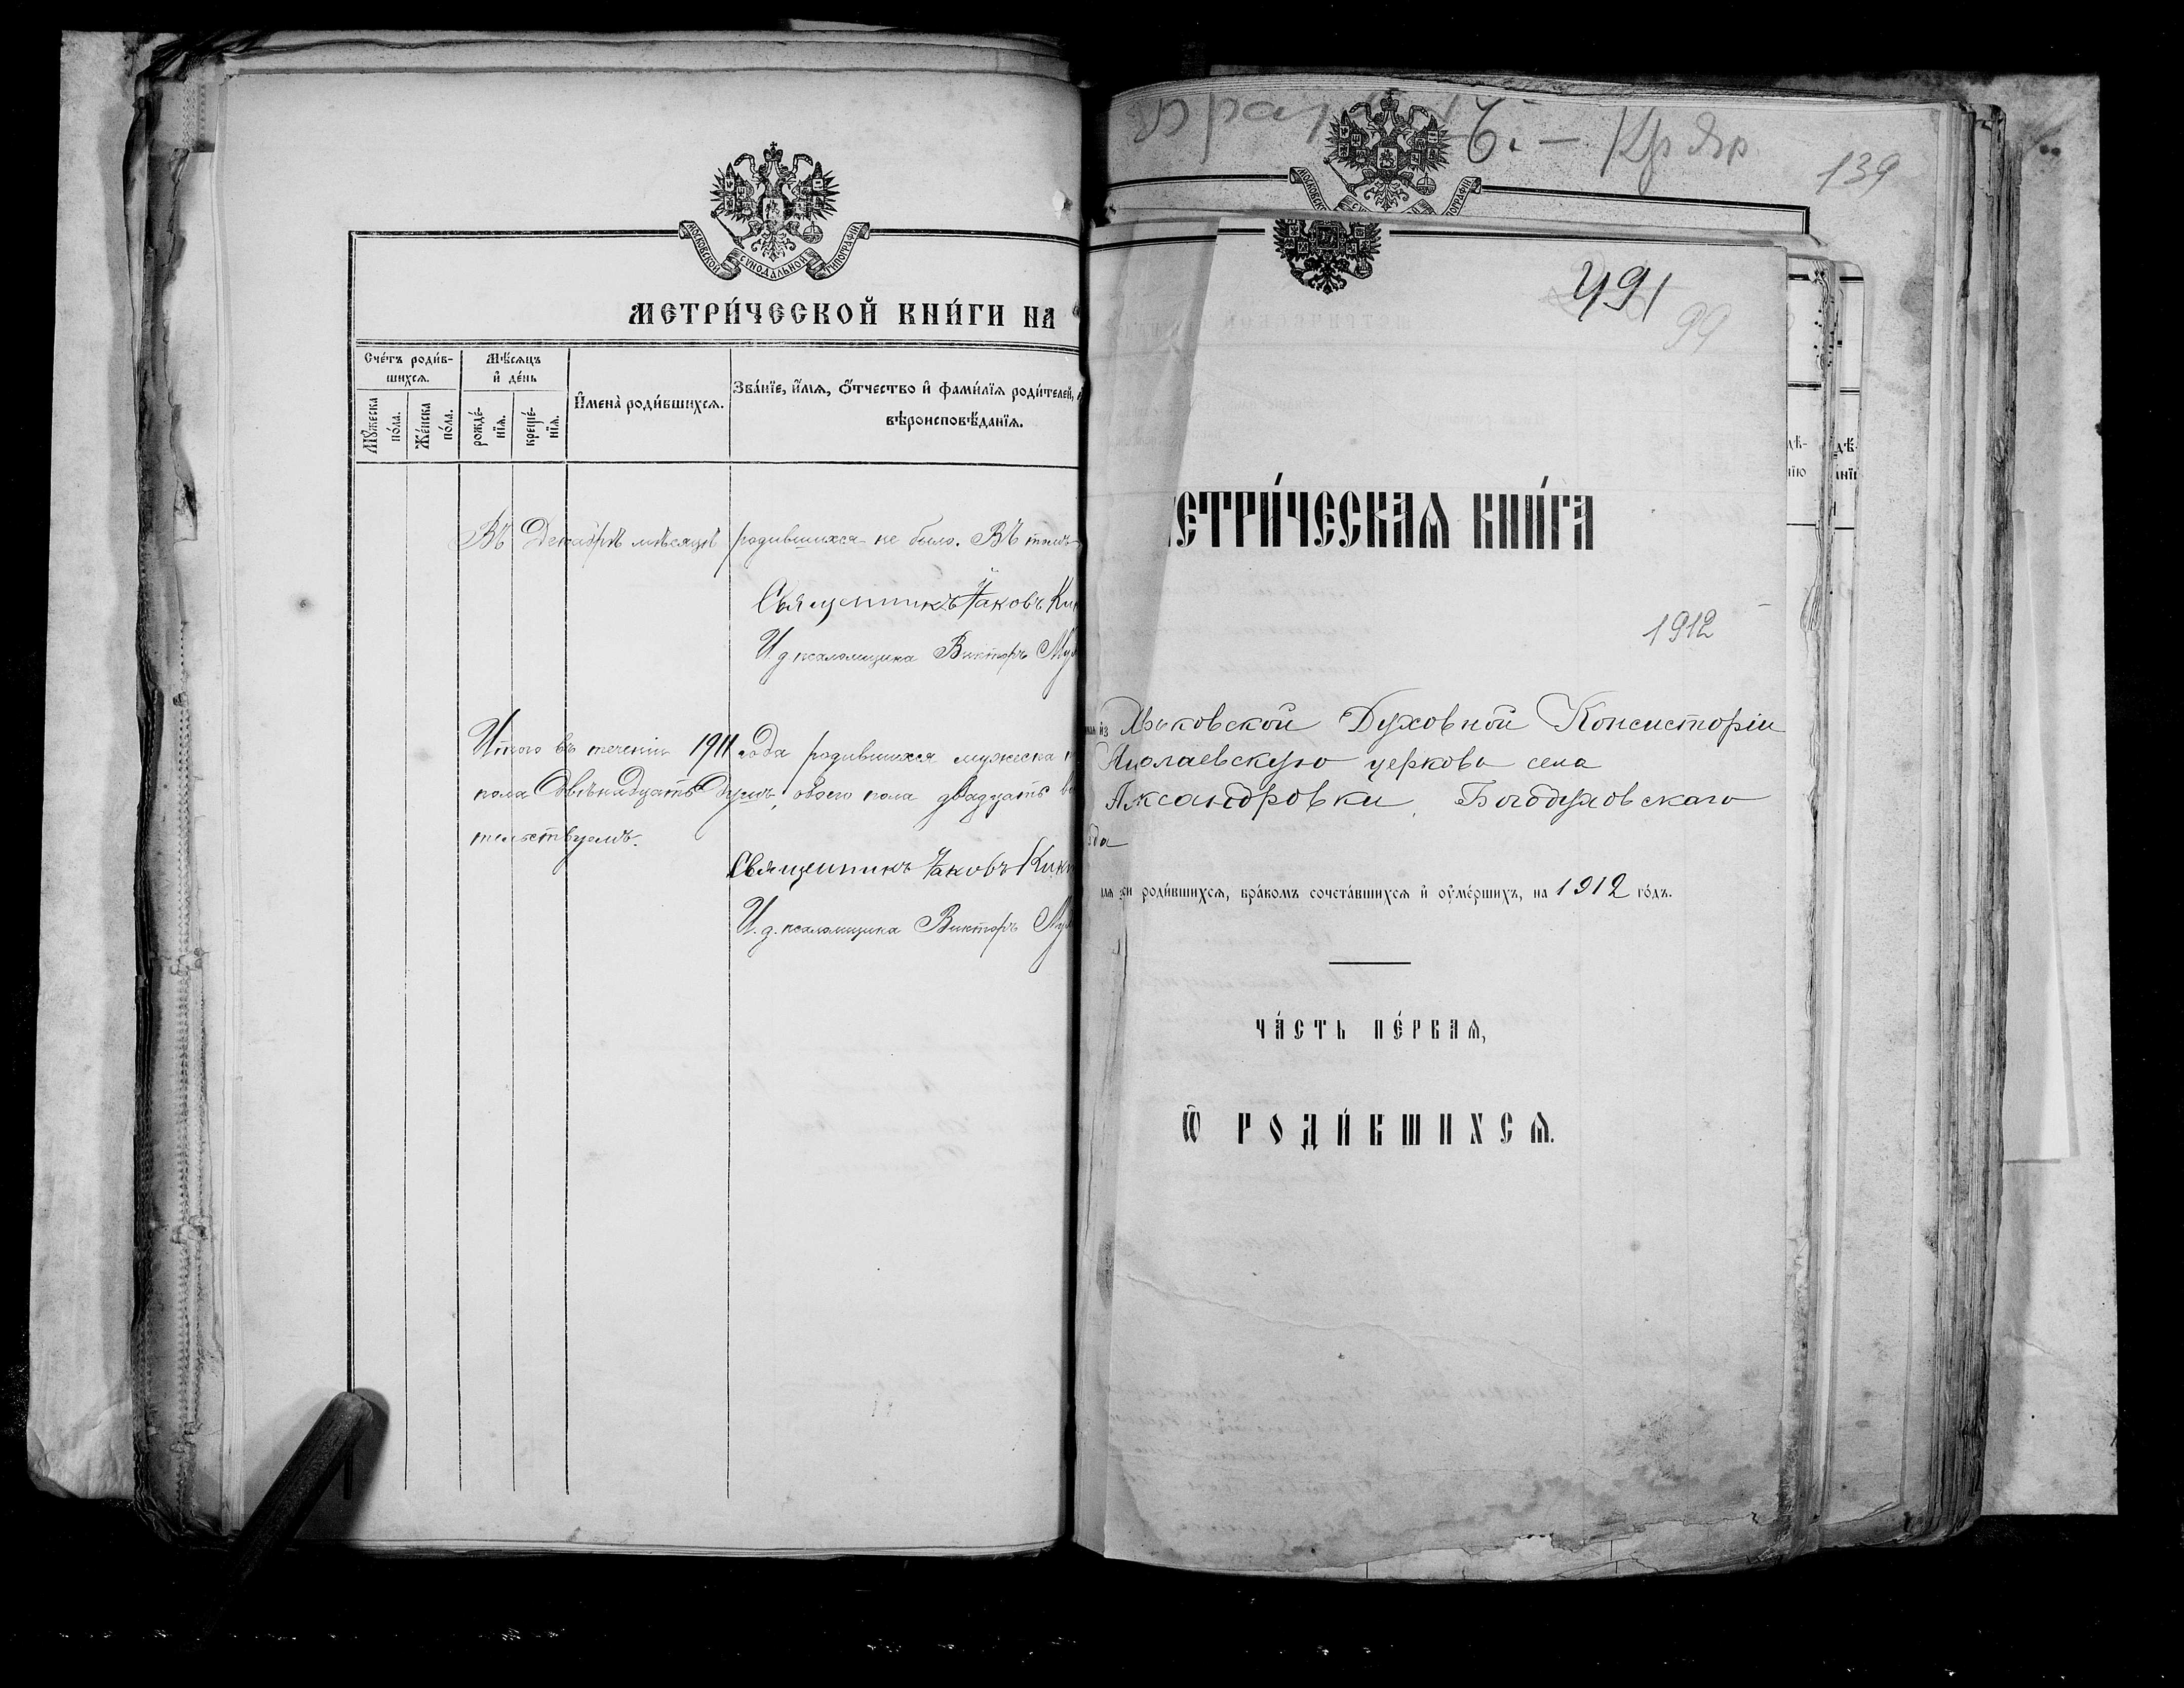 МОСКОВСКОЙ СѴНОДАЛЬНОЙ ТИПОГРАФІИ
МЕТРИ́ЧЕСКОЙ КНИ́ГИ НА
Сче́тъ роди́в-
шихсѧ.
Мѣ́сѧцъ
и҆ де́нь
И҆мена̀ роди́вшихсѧ.
Зва́нїе, и҆́мѧ, ѻ҆́тчество и҆ фами́лїѧ роди́телей,
вѣроисповѣ́данїѧ.
Мꙋ́жеска
по́ла.
Же́нска
по́ла.
рожде́-
нїѧ.
креще́-
нїѧ.
Въ Декабрѣ мѣсяцѣ родившихся не было. Въ томъ
Священникъ Іаковъ
И. д. псаломщика Викторъ
Итого въ теченіи 1911 года родившихся мужеска
пола двѣнадцать душъ, обоего пола двадцать
тельствуемъ.
Священникъ Іаковъ
И. д. псаломщика Викторъ
139
491
99
ЕТРИ́ЧЕСКАѦ КНИ́ГА
1912
из рьковской Духовной Консисторіи
колаевскую церковь села
Александровки, Богодуховскаго
зда
роди́вшихсѧ, бра́комъ сочета́вшихсѧ и҆ ᲂу҆ме́ршихъ, на 1912 го́дъ.
ЧА́СТЬ ПЕ́РВАѦ,
Ѽ РОДИ́ВШИХСѦ.